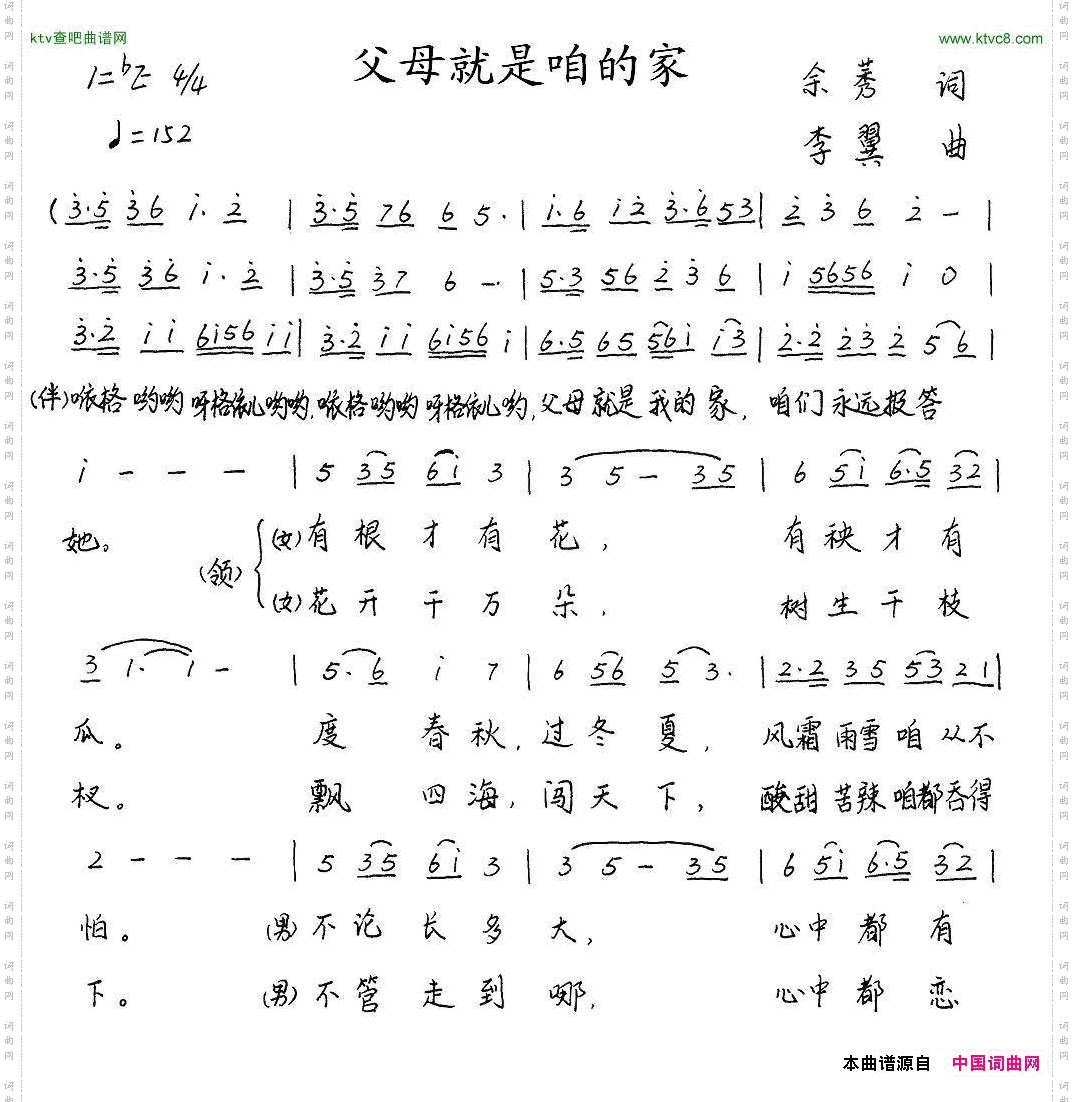 ktv查吧曲谱网
www.ktvc8.com
父母就是咱的家
1=♭E 4/4
♩=152
余莠 词
李翼 曲
(3·5 36 i·2 | 3·5 76 6 5· | i·6 i2 3·6 53 | 2 3 6 2 - |
3·5 36 i·2 | 3·5 37 6 -· | 5·3 56 2 3 6 | i 5656 i 0 |
3·2 i i 6i56 i i | 3·2 i i 6i56 i | 6·5 65 56i i3 | 2·2 23 2 5 6 |
(伴)咴格哟哟呀格依儿哟哟,咴格哟哟呀格依儿哟,父母就是我的家,咱们永远报答
i - - - | 5 35 6i 3 | 3 5 - 35 | 6 5i 6·5 32 |
她。 (领) (女)有根才有花, 有秧才有
(女)花开千万朵, 树生千枝
3 1· 1 - | 5·6 i 7 | 6 56 5 3· | 2·2 35 53 21 |
瓜。 度春秋,过冬夏, 风霜雨雪咱从不
杈。 飘四海,闯天下, 酸甜苦辣咱都吞得
2 - - - | 5 35 6i 3 | 3 5 - 35 | 6 5i 6·5 32 |
怕。 (男)不论长多大, 心中都有
下。 (男)不管走到哪, 心中都恋
本曲谱源自 中国词曲网